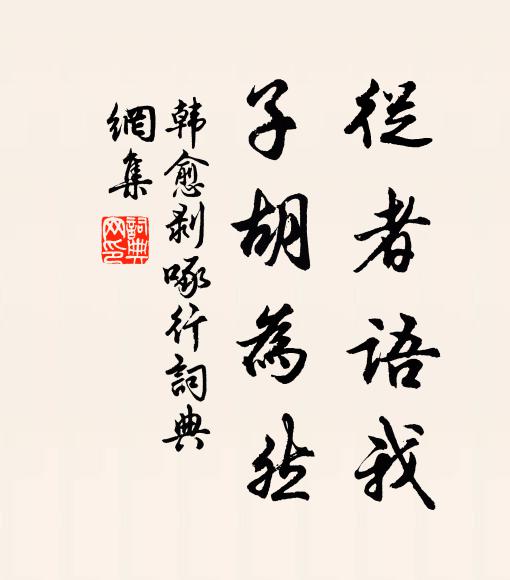 從者語我
子胡為然
韩愈剥啄行詞典
網集
詞典
网印